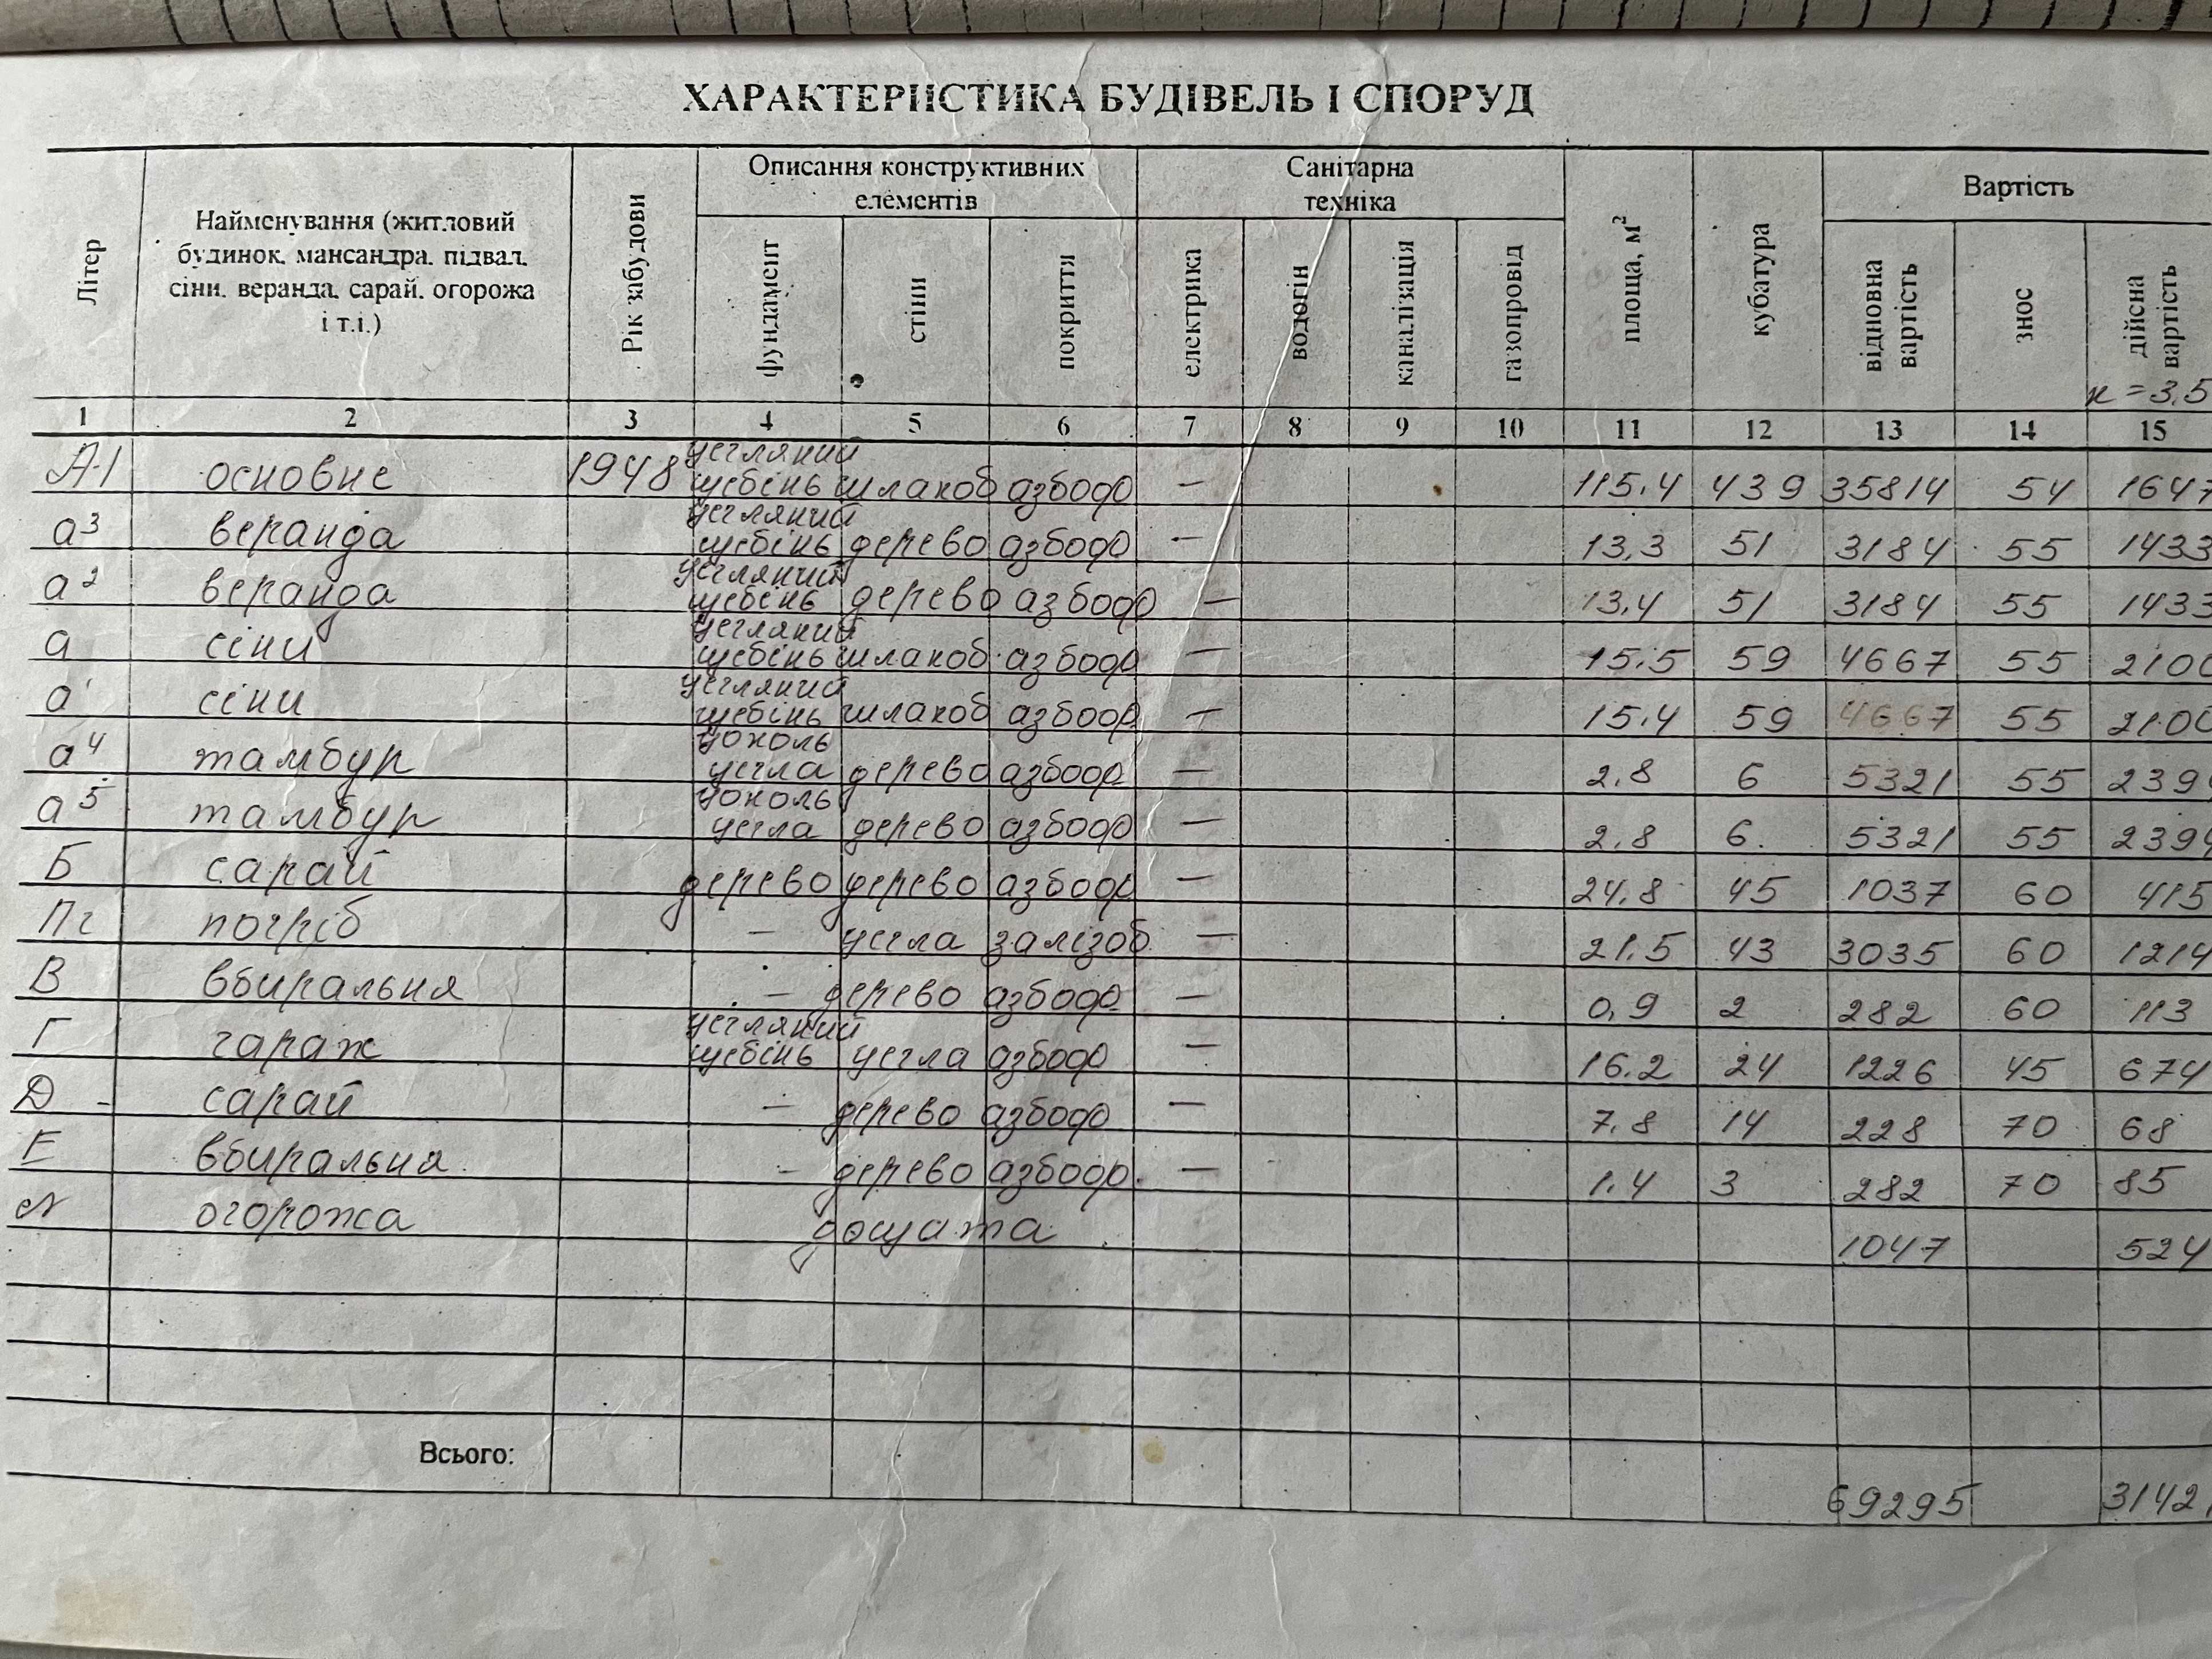 ХАРАКТЕРИСТИКА БУДІВЕЛЬ І СПОРУД
Літер
Найменування (житловий
будинок, мансандра, підвал,
сіни, веранда, сарай, огорожа
і т.і.)
Рік забудови
Описання конструктивних
елементів
фундамент
стіни
покриття
Санітарна
техніка
електрика
водогін
каналізація
газопровід
площа, м²
кубатура
Вартість
відновна
вартість
знос
дійсна
вартість
к = 3,5
1 2 3 4 5 6 7 8 9 10 11 12 13 14 15
А-1 основне 1948 цегляний щебінь шлакоб азбофр — 115.4 439 35814 54 1647
а³ веранда цегляний щебінь дерево азбофр — 13,3 51 3184 55 1433
а² веранда цегляний щебінь дерево азбофр — 13,4 51 3184 55 1433
а сіни цегляний щебінь шлакоб азбофр — 15.5 59 4667 55 2100
а' сіни цегляний щебінь шлакоб азбофр — 15.4 59 4667 55 2100
а⁴ тамбур цоколь цегла дерево азбофр — 2.8 6 5321 55 239
а⁵ тамбур цоколь цегла дерево азбофр — 2.8 6. 5321 55 239
Б сарай дерево дерево азбофр — 24.8 45 1037 60 415
Пг погріб — цегла залізоб. — 21.5 43 3035 60 1214
В вбиральня — дерево азбофр — 0,9 2 282 60 113
Г гараж цегляний щебінь цегла азбофр — 16.2 24 1226 45 674
Д - сарай — дерево азбофр — 7.8 14 228 70 68
Е вбиральня - дерево азбофр. — 1.4 3 282 70 85
N огорожа дощата 1047 524
Всього: 69295 3142